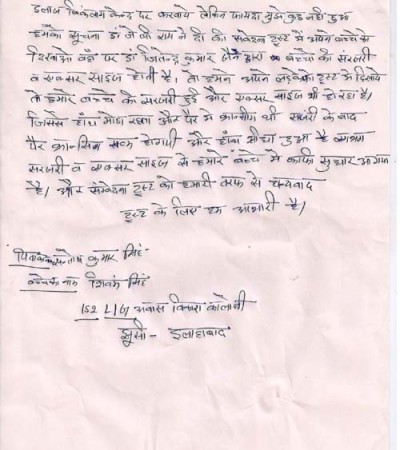 इलाज विकलांग केन्द्र पर करवाये लेकिन फायदा मुझे कुछ नही हुआ
हमको सूचना डा जे वी राय ने दी की संवेदना ट्रस्ट में अपने बच्चे को
दिखाओ वहाँ पर डा जितेन्द्र कुमार जैन द्वारा बच्चो की सरजरी
व एक्सर साइज होती है। तो हमने अपने लड़के का ट्रस्ट में दिखाये
तो हमारे बच्चे की सरजरी हुई और एक्सर साइज भी हो रहा है।
जिससे हाँथ मोड़ा रखता और पैर में क्रासींग थी सर्जरी के बाद
पैर क्रासिंग खत्म होगयी और हाँथ सीधा हुआ है व्यायाम
सरजरी व एक्सर साइज से हमारे बच्चे में काफि सुधार आ गया
है। और संवेदना ट्रस्ट को हमारी तरफ से धन्यवाद
ट्रस्ट के लिए हम आभारी है।
कुमार सिंह
बच्चे का नाम शिवम सिंह
152 L/G आवास विकास कालोनी
झूसी - इलाहाबाद